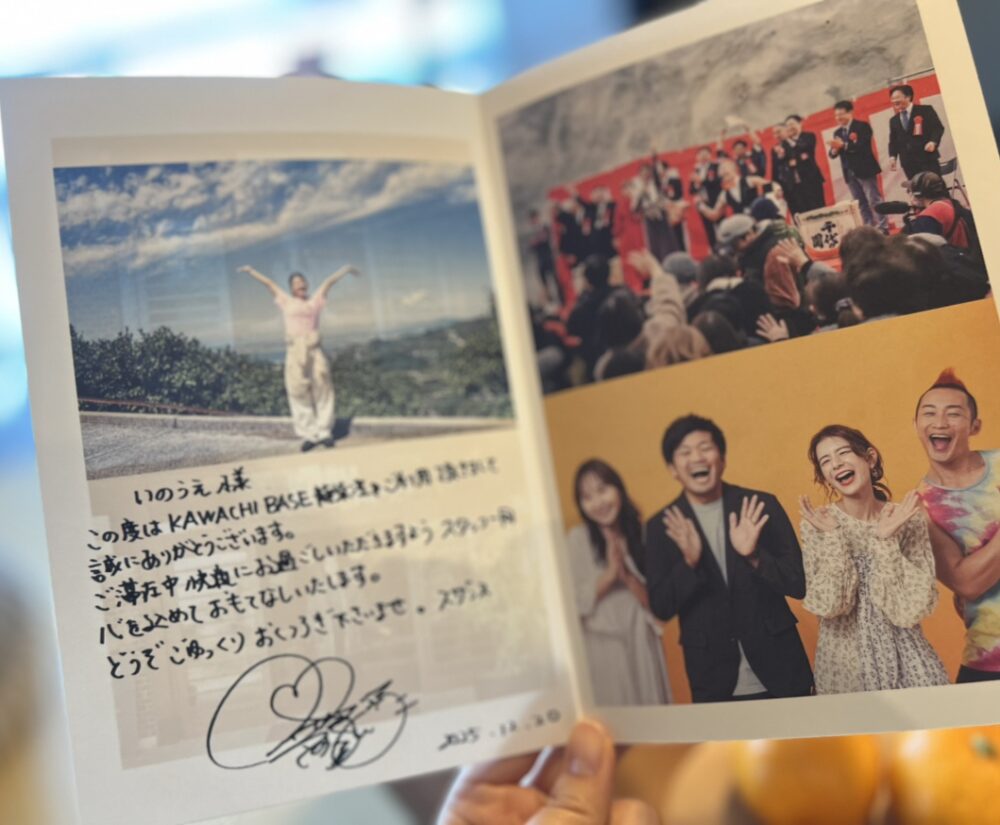 いのうえ様
この度は KAWACHI BASE をご利用頂きまして
誠にありがとうございます。
ご滞在中 快適にお過ごしいただきますよう スタッフ一同
心を込めておもてなしいたします。
どうぞ ごゆっくり おくつろぎ下さいませ。
2025.12.20